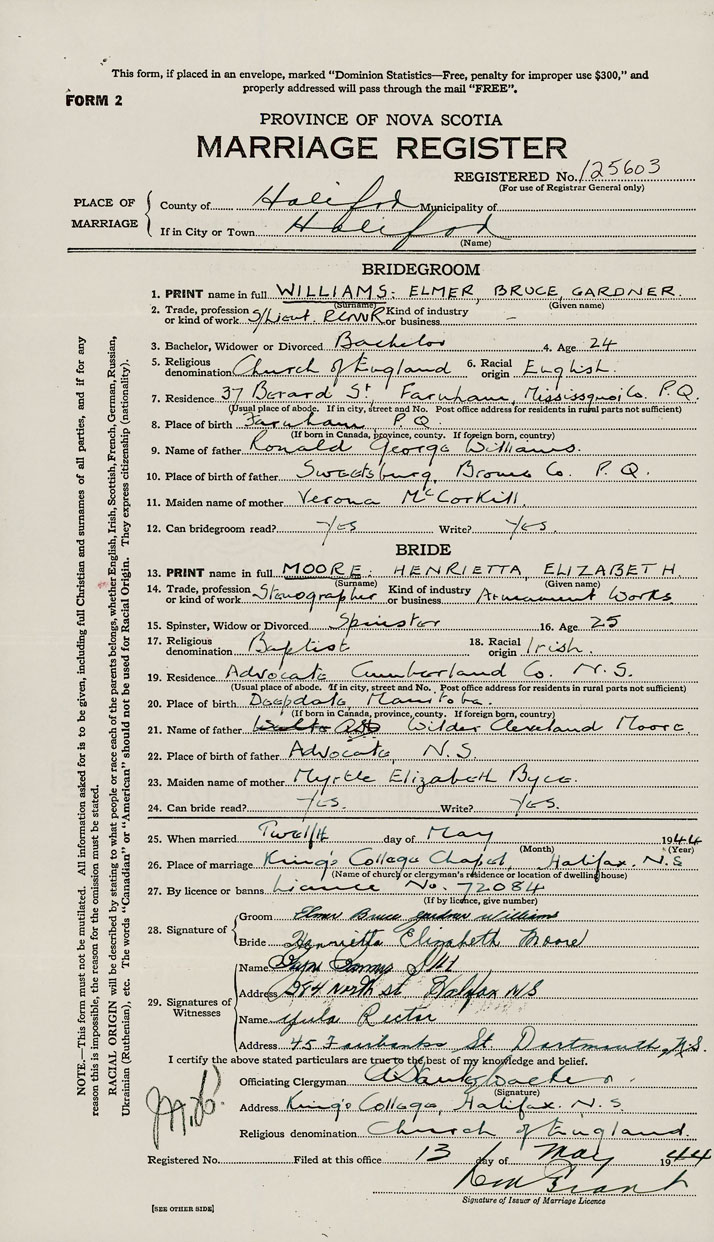 This form, if placed in an envelope, marked "Dominion Statistics—Free, penalty for improper use $300," and
properly addressed will pass through the mail "FREE".
FORM 2
PROVINCE OF NOVA SCOTIA
MARRIAGE REGISTER
REGISTERED No. 125603
(For use of Registrar General only)
PLACE OF MARRIAGE
County of Halifax Municipality of
If in City or Town Halifax
(Name)
BRIDEGROOM
1. PRINT name in full WILLIAMS: ELMER, BRUCE, GARDNER.
(Surname) (Given name)
2. Trade, profession or kind of work S/Lieut. RCNVR Kind of industry or business –
3. Bachelor, Widower or Divorced Bachelor 4. Age 24
5. Religious denomination Church of England 6. Racial origin English.
7. Residence 37 Berard St, Farnham, Missisquoi Co. P.Q.
(Usual place of abode. If in city, street and No. Post office address for residents in rural parts not sufficient)
8. Place of birth Farnham P.Q.
(If born in Canada, province, county. If foreign born, country)
9. Name of father Ronald George Williams.
10. Place of birth of father Sweetsburg, Brome Co. P.Q.
11. Maiden name of mother Verona McCorkill
12. Can bridegroom read? Yes Write? Yes
BRIDE
13. PRINT name in full MOORE: HENRIETTA, ELIZABETH.
(Surname) (Given name)
14. Trade, profession or kind of work Stenographer Kind of industry or business Armament Works
15. Spinster, Widow or Divorced Spinster 16. Age 25
17. Religious denomination Baptist 18. Racial origin Irish.
19. Residence Advocate Cumberland Co. N.S.
(Usual place of abode. If in city, street and No. Post office address for residents in rural parts not sufficient)
20. Place of birth Deepdale, Manitoba.
(If born in Canada, province, county. If foreign born, country)
21. Name of father Wilder Cleveland Moore.
22. Place of birth of father Advocate, N.S.
23. Maiden name of mother Myrtle Elizabeth Byce.
24. Can bride read? Yes. Write? Yes.
25. When married Twelfth day of May 1944
(Month) (Year)
26. Place of marriage King's College Chapel, Halifax. N.S
(Name of church or clergyman's residence or location of dwelling house)
27. By licence or banns Licence No. 72084
(If by licence, give number)
28. Signature of
Groom Elmer Bruce Gardner Williams
Bride Henrietta Elizabeth Moore
29. Signatures of Witnesses
Name
Address 284 North St Halifax NS
Name Yula Rector
Address 45 Fairbanks St Dartmouth, N.S.
I certify the above stated particulars are true to the best of my knowledge and belief.
Officiating Clergyman
(Signature)
Address King's College, Halifax. N.S.
Religious denomination Church of England.
Registered No. Filed at this office 13 day of May 1944
Grant
Signature of Issuer of Marriage Licence
[SEE OTHER SIDE]
NOTE.—This form must not be mutilated. All information asked for is to be given, including full Christian and surnames of all parties, and if for any
reason this is impossible, the reason for the omission must be stated.
RACIAL ORIGIN will be described by stating to what people or race each of the parents belongs, whether English, Irish, Scottish, French, German, Russian,
Ukrainian (Ruthenian), etc. The words "Canadian" or "American" should not be used for Racial Origin. They express citizenship (nationality).